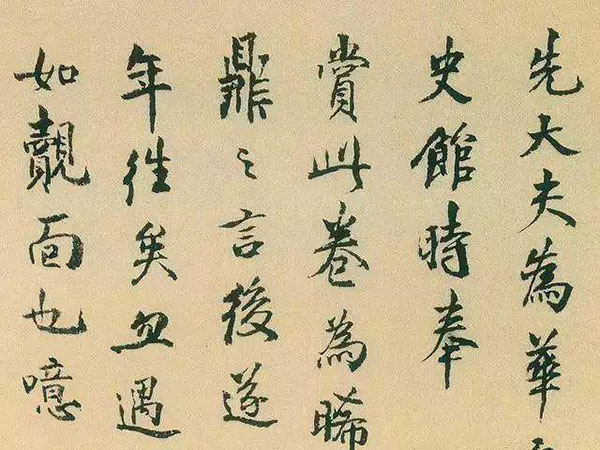 先大夫為華
史館時奉
賞此卷為晞
鼎之言後遂
年往矣忽遇
如覿面也噫